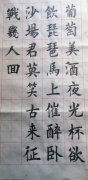 葡萄美酒夜光杯欲
飲琵琶馬上催醉卧
沙場君莫笑古来征
戰幾人回